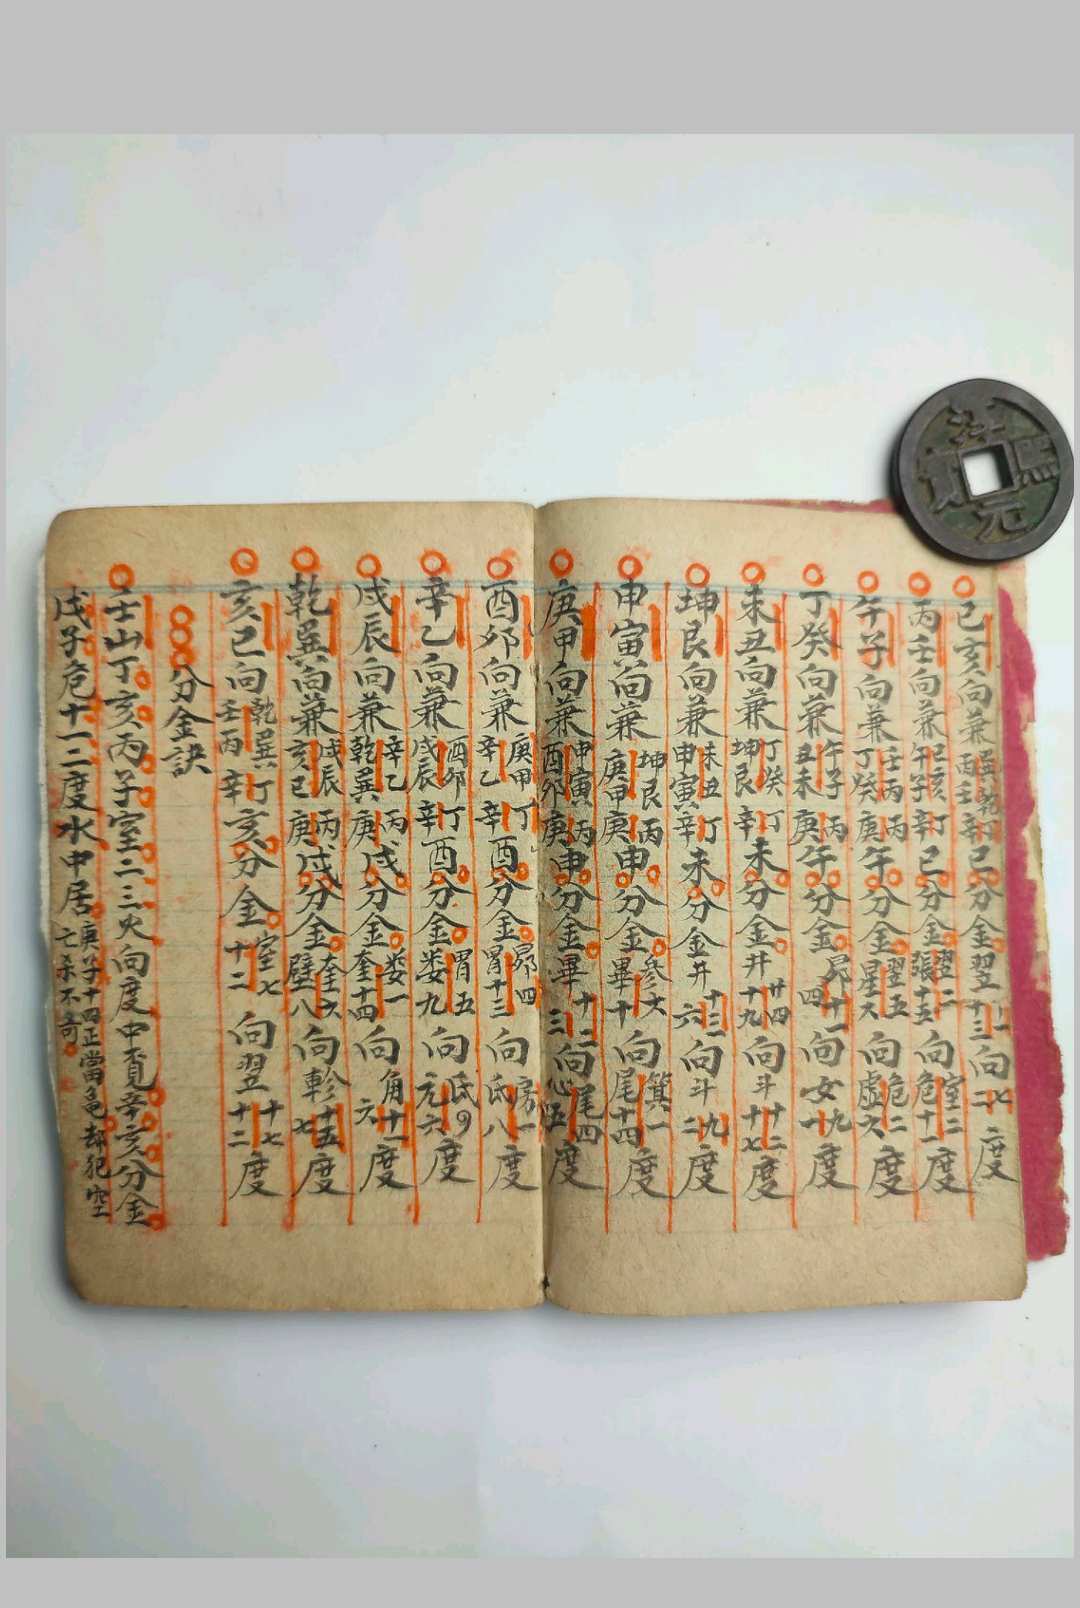 巳亥向兼巽乾丙壬丁辛巳分金翌二十三向二七度
丙壬向兼巳亥午子丁辛巳分金翌二張十五向室二危十一度
午子向兼壬丙丁癸丙庚午分金翌五星六向危二虛六度
丁癸向兼午子丑未丙庚午分金昴十一四向女九一度
未丑向兼丁癸坤艮丁辛未分金井廿四十九向斗十二十七度
坤艮向兼未丑申寅丁辛未分金井十三六向斗九二度
申寅向兼坤艮庚甲丙庚申分金參六畢十向箕一尾十四度
庚甲向兼申寅酉卯丙庚申分金畢十二三向尾四心五度
酉卯向兼庚甲辛乙丁辛酉分金昴四胃十三向房一氐八度
辛乙向兼酉卯戌辰丁辛酉分金胃五娄九向氐九元六度
戌辰向兼辛乙乾巽丙庚戌分金娄一奎十四向角十一六度
乾巽向兼戌辰亥巳丙庚戌分金奎六壁八向軫十五七度
亥巳向乾巽壬丙丁辛亥分金室七十二向翌十七十二度
分金訣
壬山丁亥丙子室二三火向度中覓辛亥分金
戊子危十一二度水中居庚子十四正當龟却犯空亡杀不奇
淳熙元寶